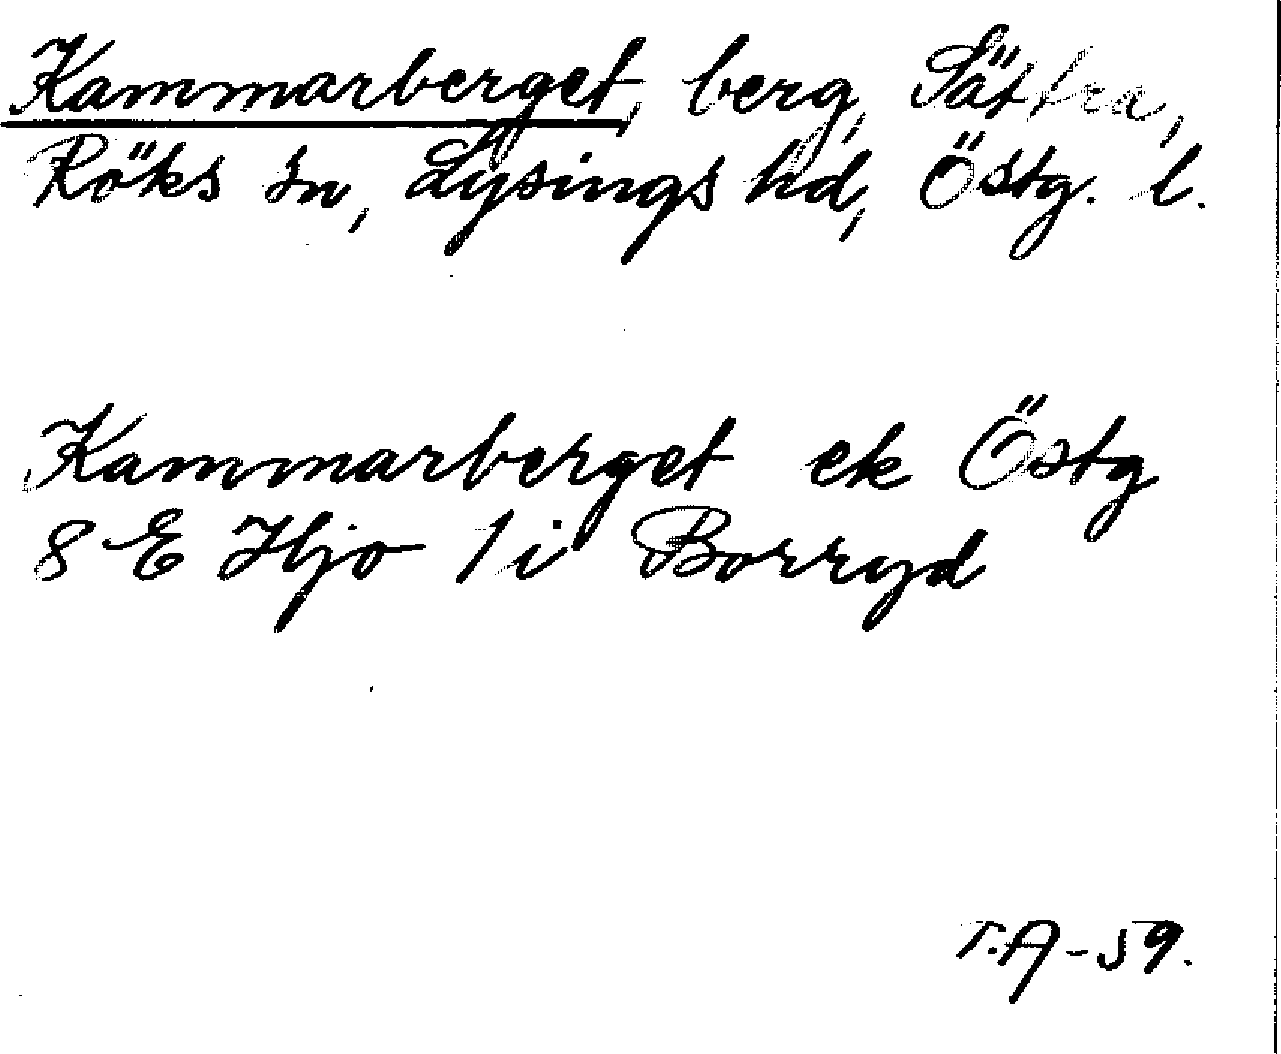 Kammarberget, berg, Sättra,
Röks sn, Lysings hd, Östg. l.
Kammarberget ek Östg
8 E Hjo 1 i Borryd
T.A-59.